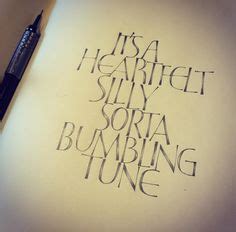 IT'S A
HEARTFELT
SILLY
SORTA
BUMBLING
TUNE